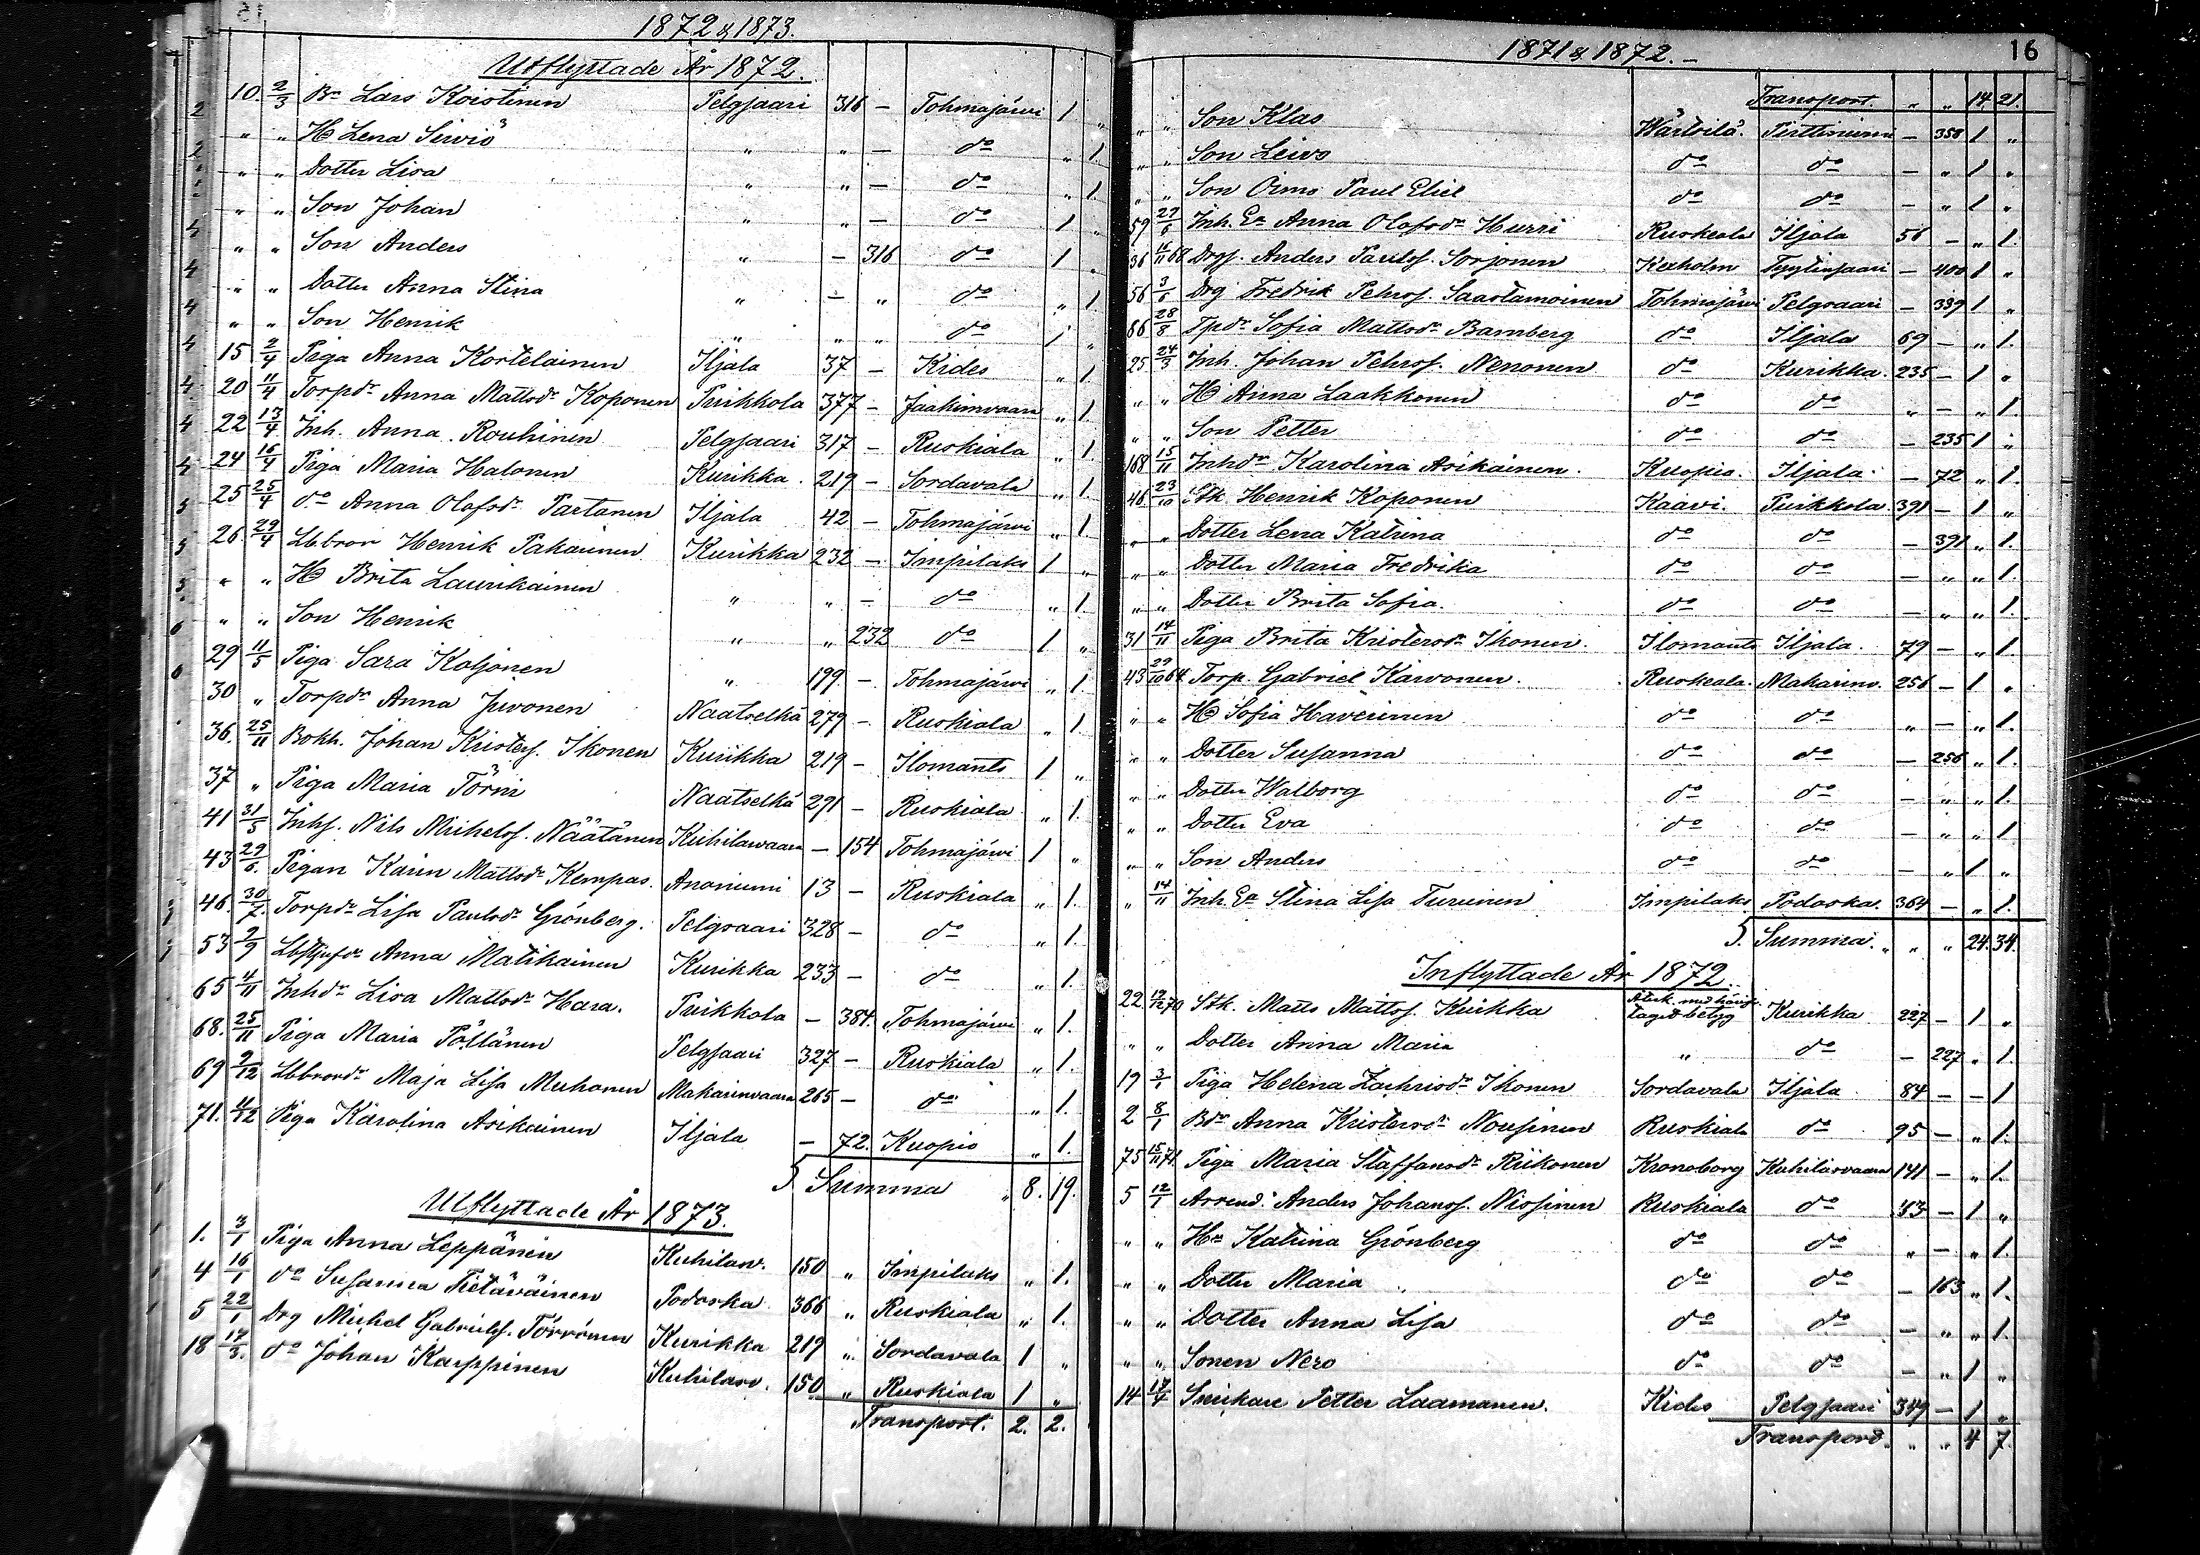 1872 & 1873.
Utflyttade År 1872.
10. 2/3 Bn Lars Koistinen Pelgjaari 316 — Tohmajärvi 1 „
„ „ H Lena Sirviö „ „ — do „ 1.
„ „ Dotter Lisa „ „ — do „ 1.
„ „ Son Johan „ „ — do 1 „
„ „ Son Anders „ — 316 do 1 „
„ „ Dotter Anna Stina „ — „ do „ 1.
„ „ Son Henrik „ „ „ do 1 „
15 2/4 Piga Anna Kortelainen Iljala 37 — Kides „ 1.
20 11/4 Torpdr Anna Mattsdr Koponen Puikkola 377 — Jaakimvaara „ 1.
22 13/4 Inh. Anna Rouhinen Pelgjaari 317 — Ruskiala „ 1.
24 16/4 Piga Maria Halonen Kurikka. 219 — Sordavala „ 1.
25 25/4 do Anna Olofsdr Partanen Iljala 42 — Tohmajärvi „ 1.
26. 29/4 Lbbror Henrik Pakarinen Kurikka 232 — Impilaks 1 „
„ „ H Brita Laurikainen „ „ — do „ 1.
„ „ Son Henrik „ „ 232 do 1 „
29 11/5 Piga Sara Koljonen „ 199 — Tohmajärvi „ 1.
30 „ Torpdr Anna Juvonen Naatselkä 279 — Ruskiala „ 1.
36. 25/11 Bokh. Johan Kristers. Ikonen Kurikka 219 — Ilomants 1 „
37 „ Piga Maria Törni Naatselkä 291 — Ruskiala „ 1.
41 31/5 Inhs. Nils Michelss. Näätänen Kuhilawaara — 154 Tohmajärvi 1 „
43 29/6. Pigan Karin Mattsdr Kempas. Anoniemi 13 — Ruskiala „ 1.
46. 30/7. Torpdr Lisa Paulsdr Grönberg. Pelgjaari 328 — do „ 1.
53 2/9 Anna Matikainen Kurikka 233 — do „ 1.
65 4/11 Inhdr Lisa Mattsdr Hara. Puikkola — 384. Tohmajärvi „ 1.
68. 25/11 Piga Maria Pöllänen Pelgjaari 327 — Ruskiala „ 1.
69 2/12 Lbbrordr Maja Lisa Muhonen Makarinvaara 265 — do „ 1.
71. 4/12 Piga Karolina Asikainen Iljala — 72. Kuopio „ 1.
S. Summa „ 8. 19.
Utflyttade År 1873.
1. 3/1 Piga Anna Leppänen Kuhilav. 150 „ Impilaks „ 1.
4 16/1 do Susanna Tietäväinen Podoska 366 „ Ruskiala „ 1.
5 22/1 Drg Michel Gabrielss. Törrönen Kurikka 219 „ Sordavala 1 „
18 17/3. do Johan Karppinen Kuhilav. 150 „ Ruskiala 1 „
Transport. 2. 2.
1871 & 1872. —
16
Transport. „ „ 14 21.
„ „ Son Klas Wärtsilä. Pirttiniemi — 358 1 „
„ „ Son Leivo do do — „ 1 „
„ „ Son Oimo Paul Eliel do do — „ 1 „
59 27/6 Inh. Ea Anna Olofsdr Hurri Ruskeala Iljala 56 — „ 1.
36 16/11 68 Drgs. Anders Paulss. Sorjonen Kexholm — 400 1 „
56 3/6 Drg Fredrik Pehrss. Saastamoinen Tohmajärvi Pelgjaari — 339 1 „
66 28/8 Tpdr Sofia Mattsdr Bamberg do Iljala 69 — „ 1.
25 24/3 Inh. Johan Pehrss. Nenonen do Kurikka. 235 — 1 „
„ „ H Anna Laakkonen do do „ — „ 1.
„ „ Son Petter do do — 235 1 „
168 15/11 Inhdr Karolina Asikainen. Kuopio. Iljala. — 72 „ 1.
46 23/10 Stk Henrik Koponen Kaavi. Puikkola. 391 — 1 „
„ „ Dotter Lena Katrina do do — 391 „ 1.
„ „ Dotter Maria Fredrika do do — „ „ 1.
„ „ Dotter Brita Sofia. do do — „ „ 1.
31 14/11 Piga Brita Kristersdr Ikonen. Ilomants Iljala. 79 — „ 1.
43 29/10 64. Torp. Gabriel Karvonen. Ruskeala. Makarinv. 256 — 1 „
„ „ H Sofia Haverinen do do „ — „ 1.
„ „ Dotter Susanna do do — 256 „ 1.
„ „ Dotter Walborg do do — „ „ 1.
„ „ Dotter Eva do do — „ „ 1
„ „ Son Anders do do — „ 1 „
„ 14/11 Inh. Ea Stina Lisa Turunen Impilaks Podoska. 364 — „ 1.
S. Summa. „ „ „ 24. 34.
Inflyttade År 1872.
22. 19/12 70 Stk. Matts Mattss. Kuikka taget betyg Kurikka 227 — 1 „
„ „ Dotter Anna Maria „ do — 227 „ 1.
19 3/1 Piga Helena Zachrisdr Ikonen Sordavala Iljala 84 — — 1
2 8/1 Bdr Anna Kristersdr Nousinen Ruskiala do 95 — „ 1.
75 15/11 71. Piga Maria Staffansdr Riikonen Kronoborg Kuhilasvaara 141 — „ 1.
5 12/1 Arrend. Anders Johanss. Nissinen Ruskiala do — 1 „
„ „ Hu Katrina Grönberg do do „ — „ 1.
„ „ Dotter Maria do do — 163 „ 1.
„ „ Dotter Anna Lisa do do — „ „ 1.
„ „ Sonen Nero do do — „ 1 „
14 17/4 Snickare Petter Laamanen. Kides Pelgjaari 349 — 1 „
Transport. „ „ 4 7.